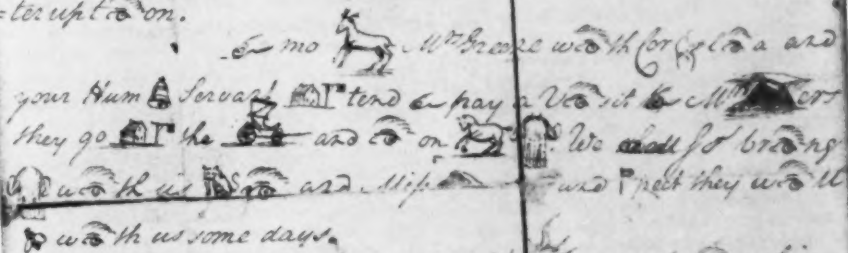 =terupt on.
mo Mrs Greene w th Cor l a and
your Hum Servant tend pay a V sit Mrs ers
they go the and on . We br ng
w th us and Miss and pect they w ll
w th us some days.